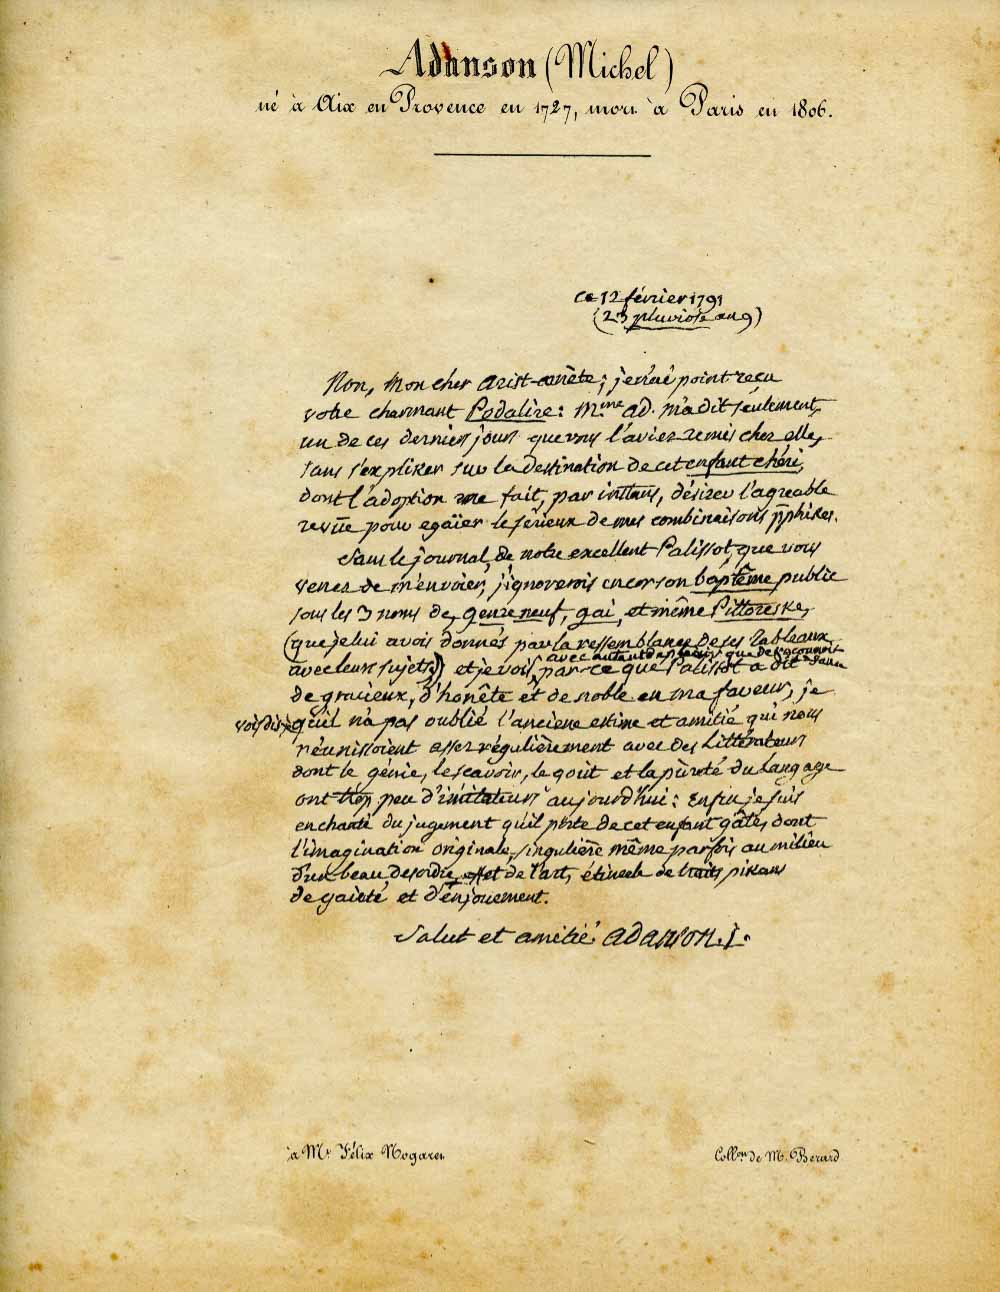 Adanson (Michel)
né à Aix en Provence en 1727, mort à Paris en 1806.
ce 12 février 1791
(23 pluviose an 9)
Non, Mon cher Arist-œnète; je n'ai point reçu
votre charmant Podalire: Mme. Ad. m'a dit seulement,
un de ces derniers jours que vous l'aviez remis chez elle,
sans s'expliker sur la destination de cet enfant chéri,
dont l'adoption me fait, par instans, désirer l'agreable
revüe pour egaïer le sérieux de mes combinaisons pphikes.
Sans le journal de notre excellent Palissot, que vous
venez de m'envoïer, j'ignorerois encor son baptême public
sous les 3 noms de, genre neuf, gai, et même Pittoreske,
(que je lui avois donnés par la ressemblance de ses tableaux
avec leurs sujets,) et je vois, par ce que Palissot a dit
avec autant de que de
de gracieux, d'honête et de noble en ma faveur, je
vois dis-je qu'il n'a pas oublié l'anciene estime et amitié qui nous
réunissoient assez régulièrement avec des Littérateurs
dont le génie, le scavoir, le goût et la pùreté du langage
ont trop peu d'imitateurs aujourd'hui: Enfin je suis
enchanté du jugement qu'il porte de cet enfant gâté, dont
l'imagination originale, singulière même parfois au milieu
d'un beau desordre, effet de l'art, étincele de traits pikans
de gaieté et d'enjouement.
Salut et amitié ADANSON. I.
à Mr. Félix Nogaret
Collon. de M. Berard